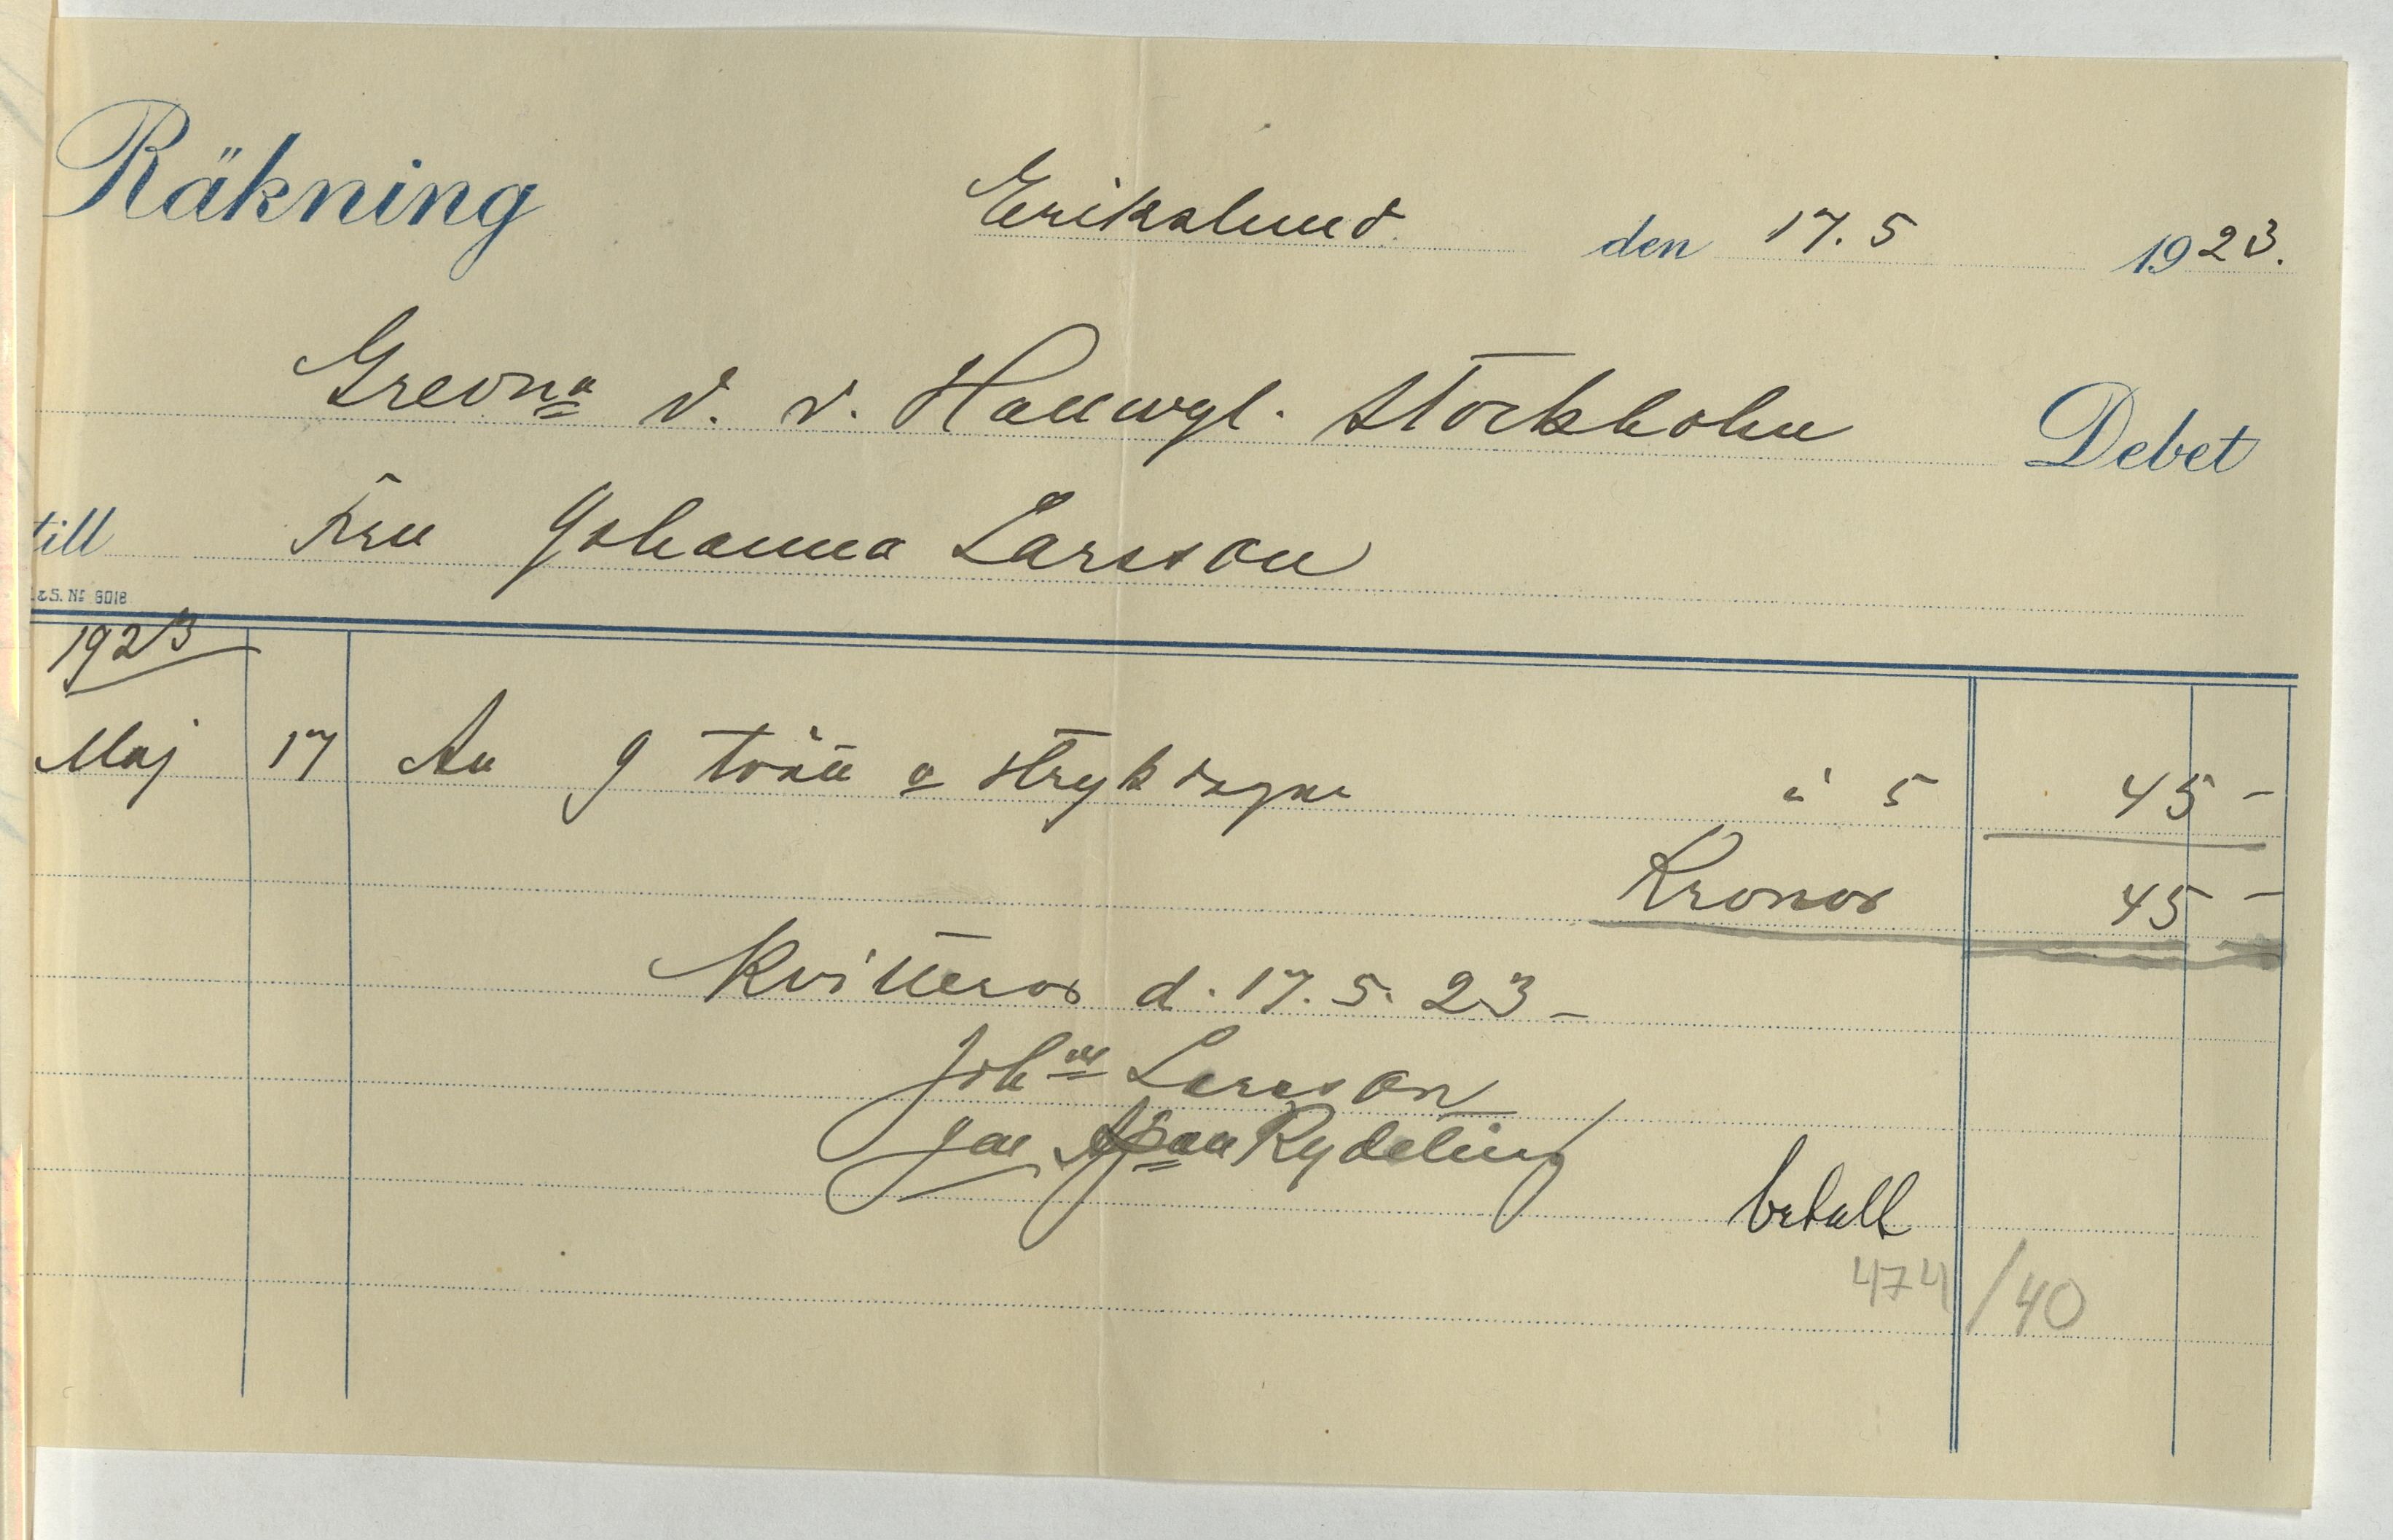 Räkning Erikslund den 17.5 1923.
Grevna v. v. Hallwyl. Stockholm Debet
till Fru Johanna Larsson
& S. No 6018
1923
Maj 17 An 9 tvätt o strykdagar à 5 45 -
Kronor 45 -
Kvitteras d. 17.5.23 -
Joha Larsson
Rydelius
betalt
474/40